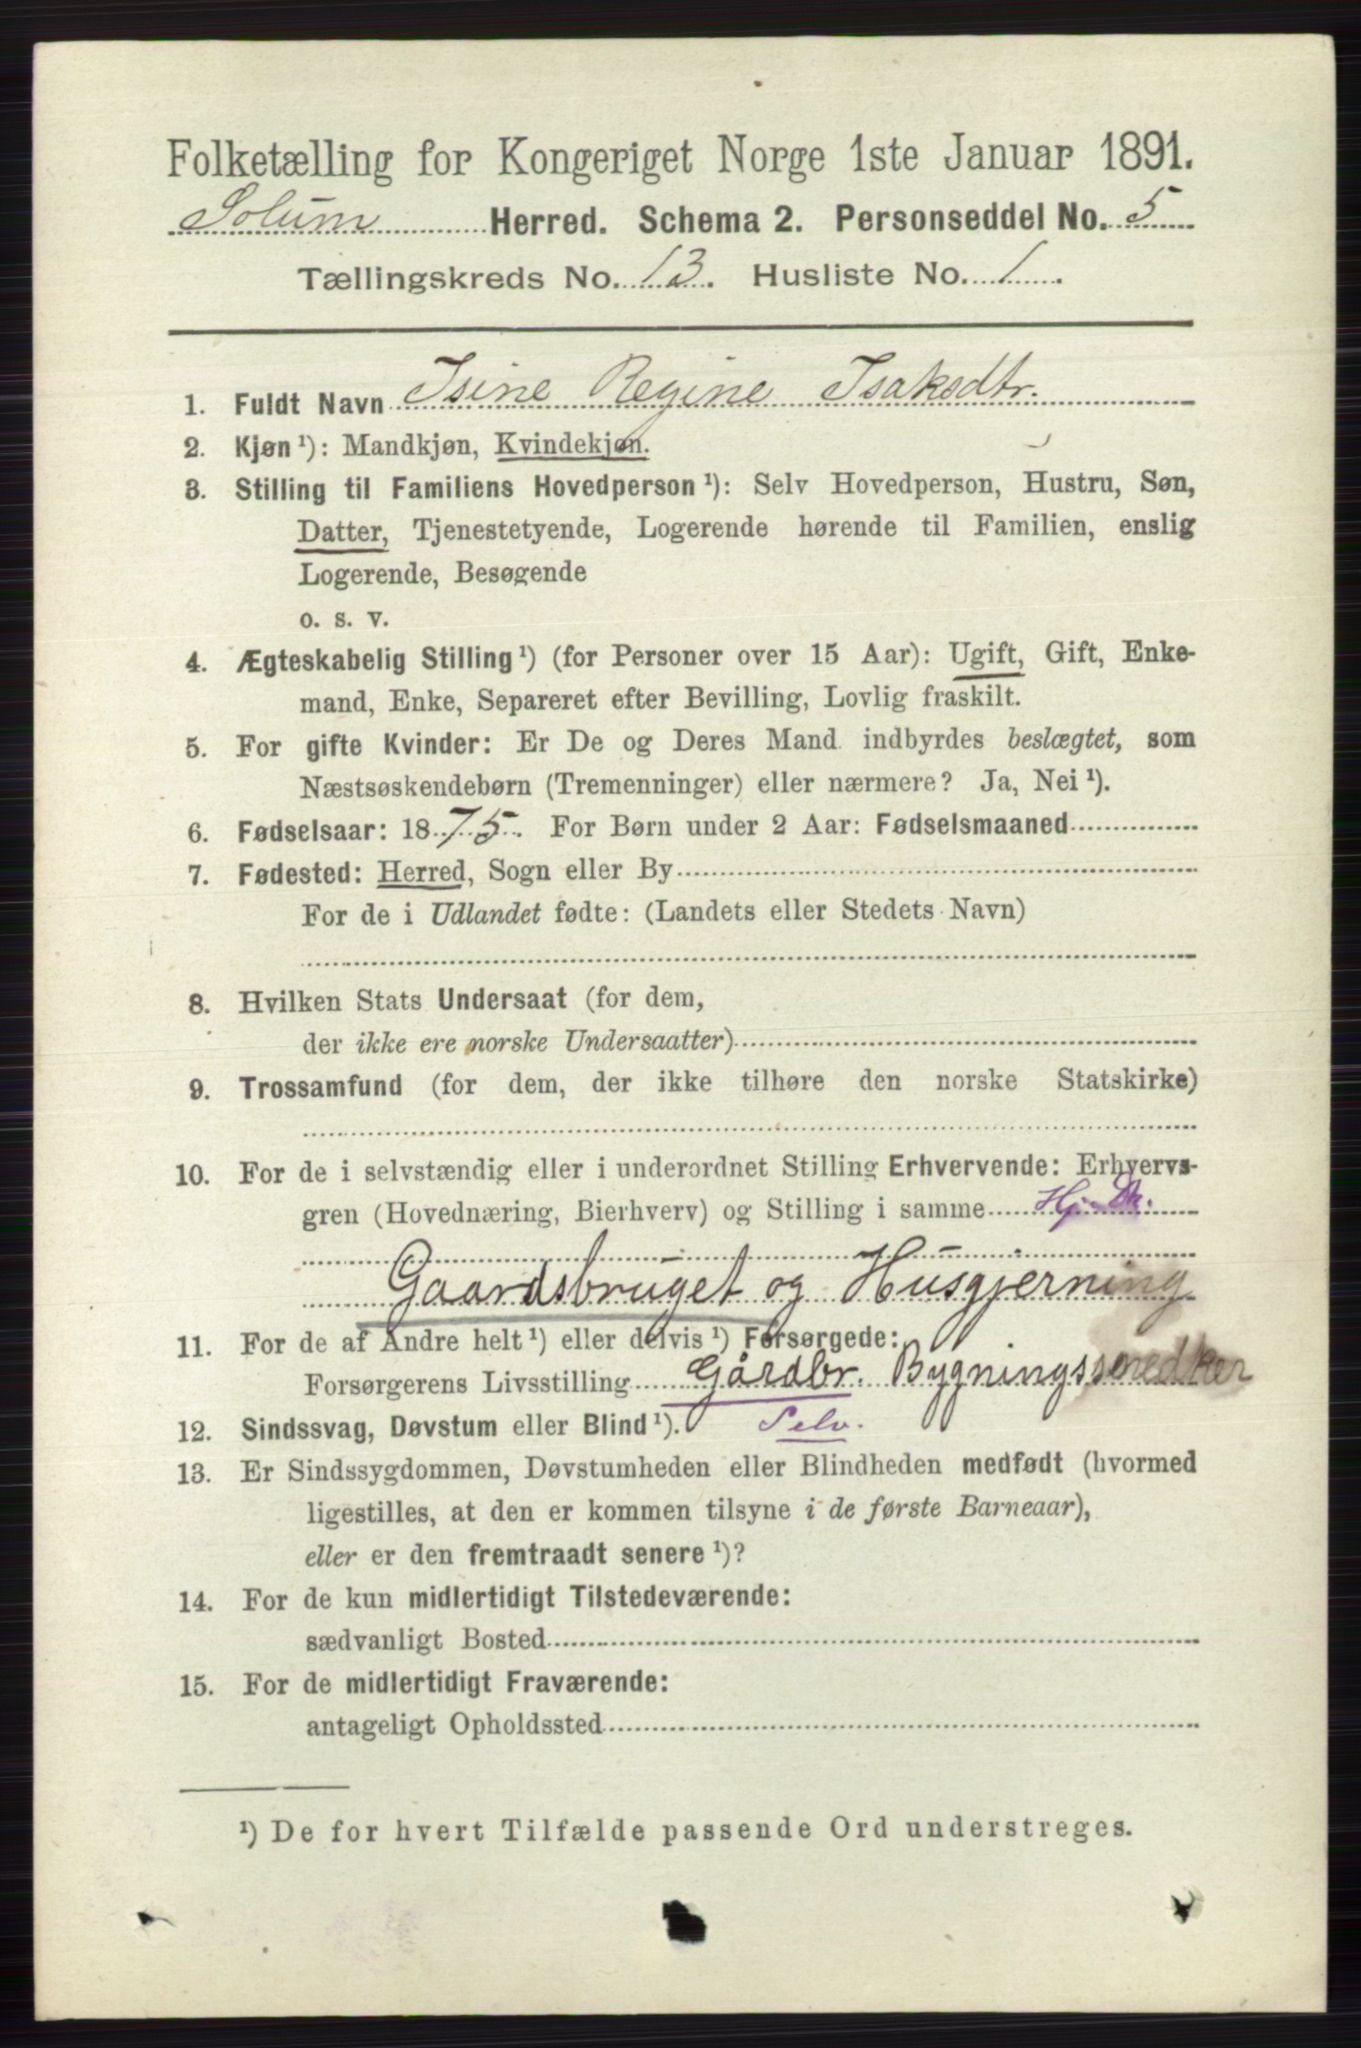 Folketælling for Kongeriget Norge 1ste Januar 1891.
Solum Herred. Schema 2. Personseddel No. 5
Tællingskreds No. 13. Husliste No. 1.
1. Fuldt Navn Isine Regine Isaksdtr.
2. Kjøn ¹): Mandkjøn, Kvindekjøn.
3. Stilling til Familiens Hovedperson ¹): Selv Hovedperson, Hustru, Søn,
Datter, Tjenestetyende, Logerende hørende til Familien, enslig
Logerende, Besøgende
o. s. v.
4. Ægteskabelig Stilling ¹) (for Personer over 15 Aar): Ugift, Gift, Enke-
mand, Enke, Separeret efter Bevilling, Lovlig fraskilt.
5. For gifte Kvinder: Er De og Deres Mand indbyrdes beslægtet, som
Næstsøskendebørn (Tremenninger) eller nærmere? Ja, Nei ¹).
6. Fødselsaar: 1875. For Børn under 2 Aar: Fødselsmaaned
7. Fødested: Herred, Sogn eller By
For de i Udlandet fødte: (Landets eller Stedets Navn)
8. Hvilken Stats Undersaat (for dem,
der ikke ere norske Undersaatter)
9. Trossamfund (for dem, der ikke tilhøre den norske Statskirke)
10. For de i selvstændig eller i underordnet Stilling Erhvervende: Erhvervs-
gren (Hovednæring, Bierhverv) og Stilling i samme Hj.
Gaardsbruget og Husgjerning
11. For de af Andre helt ¹) eller delvis ¹) Forsørgede:
Forsørgerens Livsstilling Gårdbr. Bygningssnedker
12. Sindssvag, Døvstum eller Blind ¹). Selv.
13. Er Sindssygdommen, Døvstumheden eller Blindheden medfødt (hvormed
ligestilles, at den er kommen tilsyne i de første Barneaar),
eller er den fremtraadt senere ¹)?
14. For de kun midlertidigt Tilstedeværende:
sædvanligt Bosted
15. For de midlertidigt Fraværende:
antageligt Opholdssted
¹) De for hvert Tilfælde passende Ord understreges.